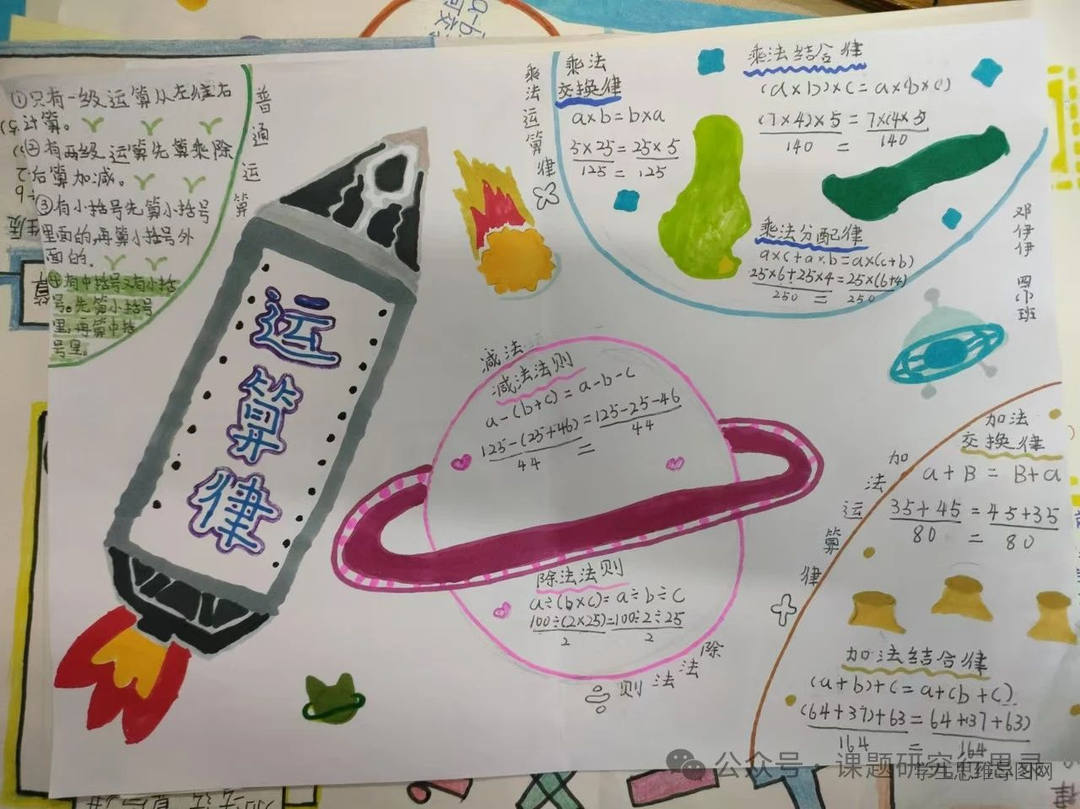 ①只有一级运算从左往右
计算。
②有两级运算先算乘除
后算加减。
③有小括号先算小括号
里面的,再算小括号外
面的。
④有中括号又有小括
号。先算小括号
里,再算中括
号里。
普通运算
运算律
乘法运算律
乘法
交换律
a×b=b×a
5×25=25×5
125=125
乘法结合律
(a×b)×c=a×(b×c)
(7×4)×5=7×(4×5
140 = 140
乘法分配律
a×c+a×b=a×(c+b)
25×6+25×4=25×(6+4)
250 = 250
邓伊伊 四小班
减法
减法法则
a-(b+c)=a-b-c
125-(25+46)=125-25-46
44 = 44
除法法则
a÷(b×c)=a÷b÷c
100÷(2×25)=100÷2÷25
2 2
÷则法法除
加法运算律
加法
交换律
a+B=B+a
35+45=45+35
80 = 80
加法结合律
(a+b)+c=a+(b+c)
(64+37)+63=64+37+63)
164 = 164
公众号·课题研究行思录
学生思维导图网